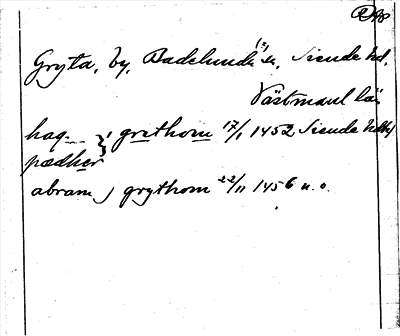 Gryta, by, Badelunda sn, Siende hd,
Västmanl län
haq... } i grethom 17/1 1452 Siende hdbs
pædher
abram i grythom 22/11 1456 u.o.